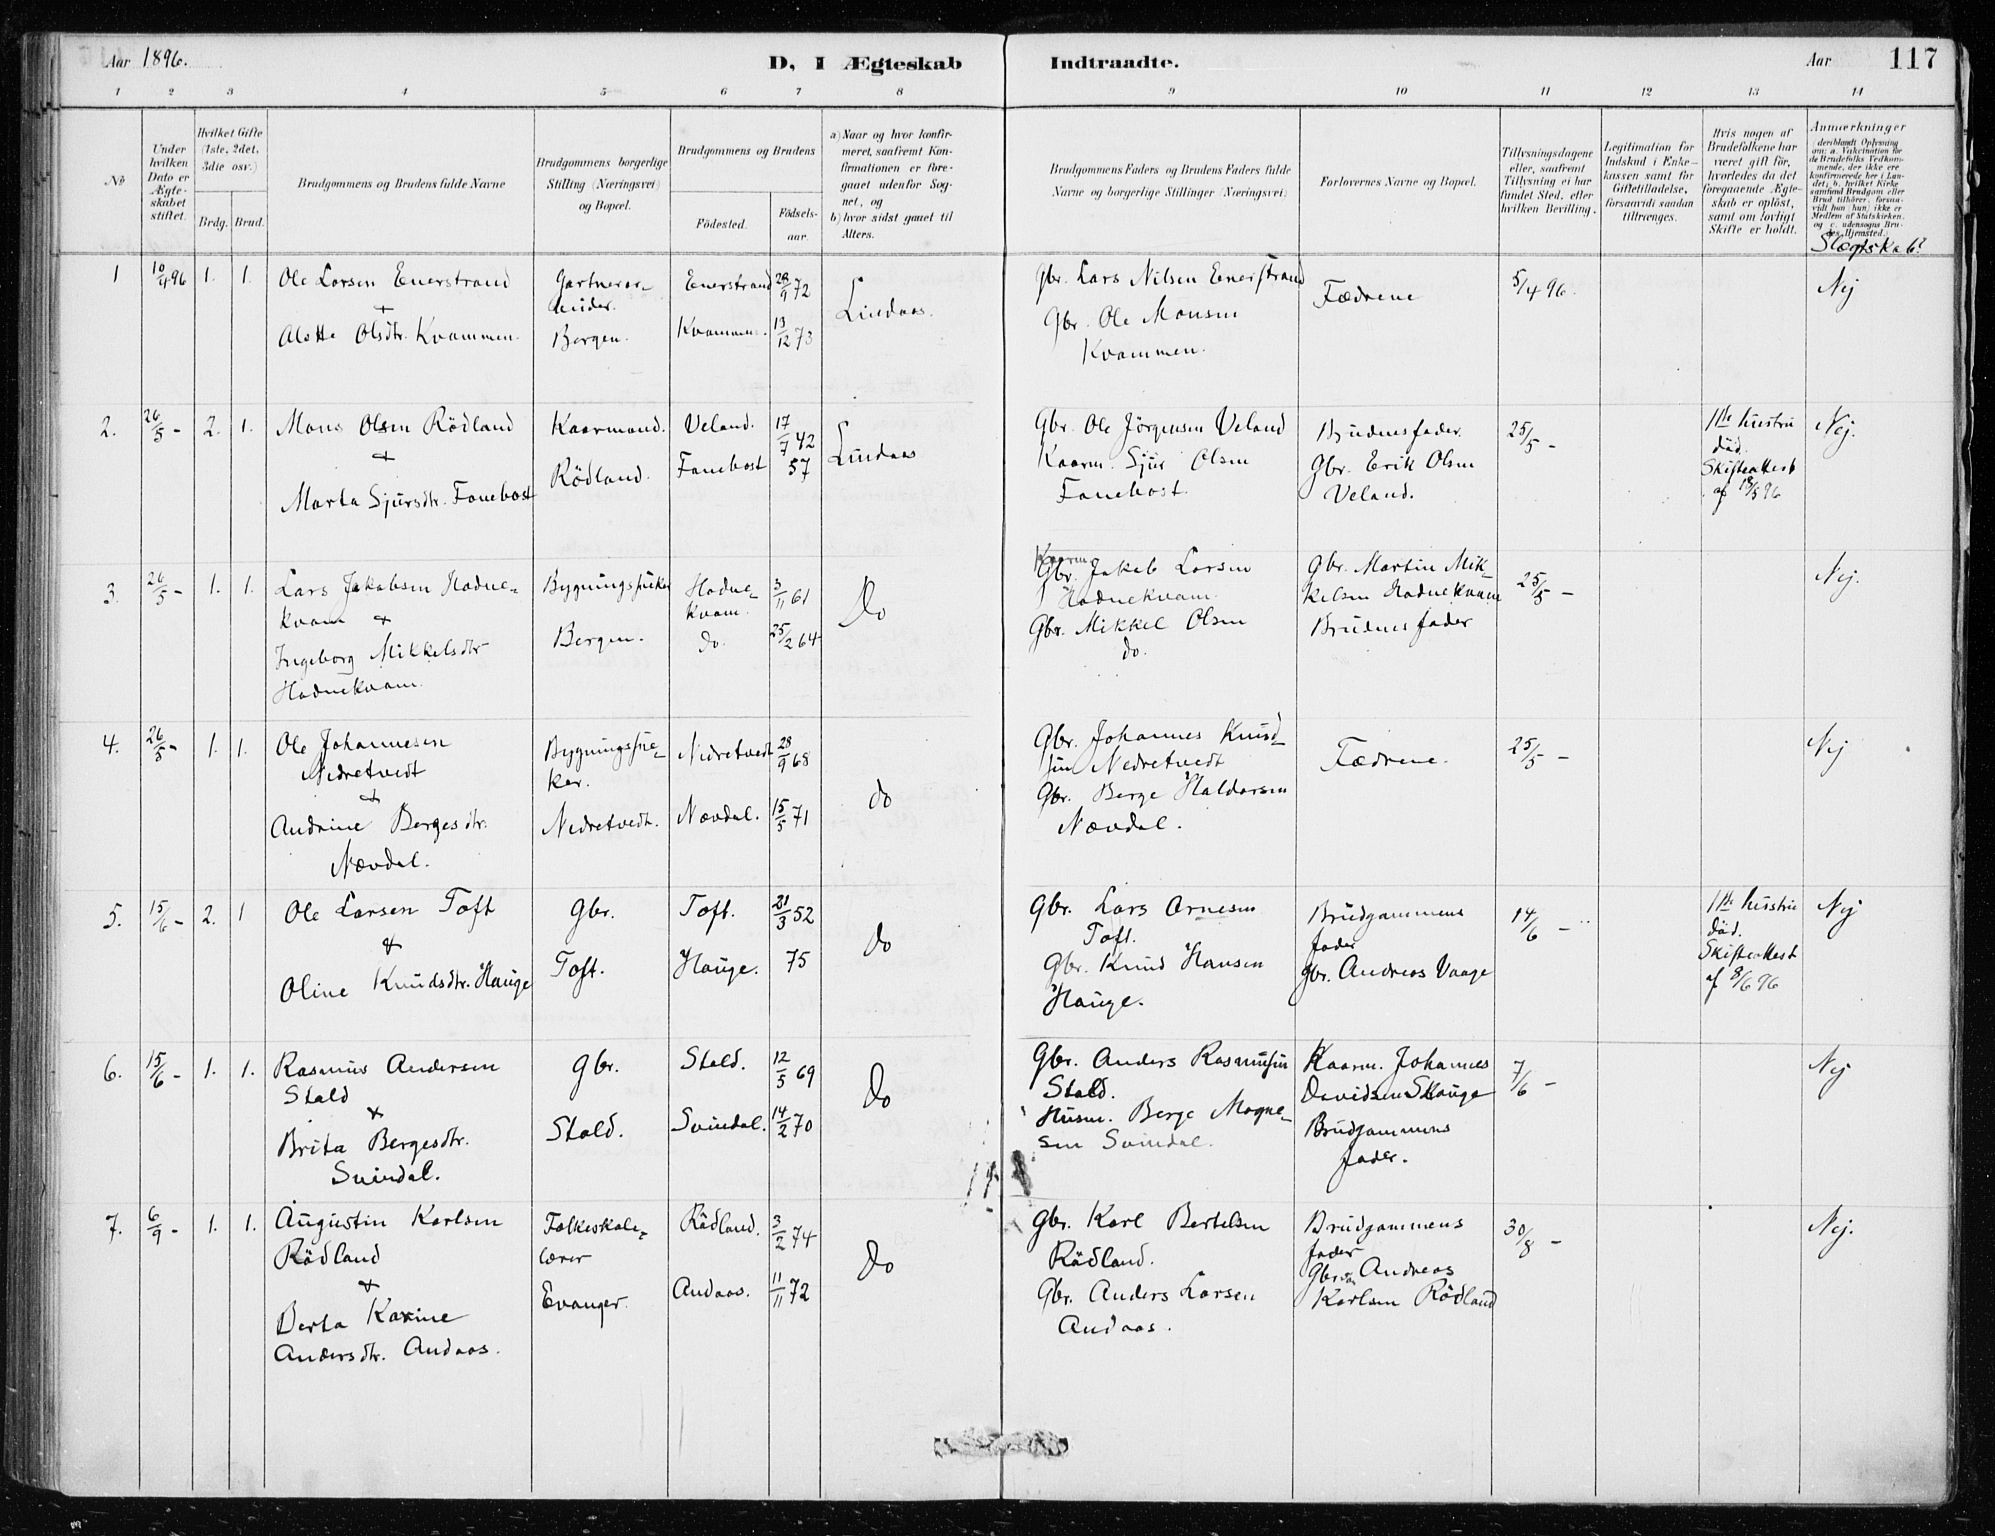 Aar 1896.
D, I Ægteskab
Indtraadte.
Aar
117
1 2 3 4 5 6 7 8
9 10 11 12 13 14
No
Under hvilken Dato er Ægteskabet stiftet.
Hvilket Gifte (1ste, 2det, 3die osv.)
Brdg. Brud.
Brudgommens og Brudens fulde Navne
Brudgommens borgerlige Stilling (Næringsvei) og Bopæl.
Brudgommens og Brudens
Fødested.
Fødselsaar.
a) Naar og hvor konfirmeret, saafremt Konfirmationen er foregaaet udenfor Sognet, og
b) hvor sidst gaaet til Alters.
Brudgommens Faders og Brudens Faders fulde Navne og borgerlige Stillinger (Næringsvei)
Forlovernes Navne og Bopæl.
Tillysningsdagene eller, saafremt Tillysning ei har fundet Sted, efter hvilken Bevilling.
Legitimation for Indskud i Enkekassen samt for Giftetilladelse, forsaavidt saadan tiltrænges.
Hvis nogen af Brudefolkene har været gift før, hvorledes da det foregaaende Ægteskab er opløst, samt om lovligt Skifte er holdt.
Anmærkninger
(deriblandt Oplysning om: a. Vakcination for de Brudefolks Vedkommende, der ikke ere konfirmerede her i Landet; b. hvilket Kirkesamfund Brudgom eller Brud tilhører, forsaavidt han (hun) ikke er Medlem af Statskirken, og c. udensogns Brudes Hjemsted.)
Slægtskab?
1 10/4 96 1. 1.
Ole Larsen Enerstrand
+
Alette Olsdtr. Kvammen.
Gartnerarbeider.
Bergen.
Enerstrand 28/9 72
Kvammen. 13/12 73
Lindaas.
Gbr. Lars Nilsen Enerstrand
Gbr. Ole Monsen
Kvammen.
Fædrene
5/4 96.
Nej
2. 26/5 - 2. 1.
Mons Olsen Rödland
&
Marta Sjursdtr. Fanebost
Kaarmand.
Rödland.
Veland. 17/7 42
Fanebost 57
Lindaas
Gbr. Ole Jörgensen Veland
Kaarm. Sjur Olsen
Fanebost.
Brudens fader.
Gbr. Erik Olsen
Veland.
25/5 -
1ste hustru
död.
Skifteattest
af 18/5 96
Nej.
3. 26/5 - 1. 1.
Lars Jakobsen Hodnekvam &
Ingeborg Mikkelsdtr
Hodnekvam.
Bygningssnekker
Bergen.
Hodnekvam. 3/11 61
do. 25/2 64
Do
Kaarm
Gbr. Jakob Larsen
Hodnekvam.
Gbr. Mikkel Olsen
do.
Gbr. Martin Mikkelsen Hodnekvam
Brudens fader
25/5 -
Nej.
4. 26/5 - 1. 1.
Ole Johannesen
Nedretvedt
&
Andrine Bergesdtr.
Nævdal.
Bygningssnekker.
Nedretvedt.
Nedretvedt 28/9 68
Nævdal. 15/5 71
do
Gbr. Johannes Knudsen Nedretvedt
Gbr. Berge Haldorsen
Nævdal.
Fædrene.
25/5 -
Nej
5. 15/6 - 2. 1
Ole Larsen Toft
&
Oline Knudsdtr. Hauge
Gbr.
Toft.
Toft. 21/3 52
Hauge. 75
do
Gbr. Lars Arnesen
Toft.
Gbr. Knud Hansen
Hauge.
Brudgommens
fader
Gbr. Andreas Vaage
14/6 -
1ste hustru
död.
Skifteattest
af 8/6 96
Nej
6. 15/6 - 1. 1.
Rasmus Andersen
Stald
&
Brita Bergesdtr.
Svindal.
Gbr.
Stald.
Stald. 12/5 69
Svindal. 14/2 70
Do
Gbr. Anders Rasmussen
Stald.
Husm. Berge Mognesen Svindal.
Kaarm. Johannes
Davidsen Skauge
Brudgommens
fader.
7/6 -
Nej
7. 6/9 - 1. 1.
Augustin Karlsen
Rödland
&
Berta Karine
Andersdtr. Andaas.
Folkeskolelærer
Evanger.
Rödland. 3/2 74
Andaas. 11/11 72
Do
Gbr. Karl Bertelsen
Rödland.
Gbr. Anders Larsen
Andaas.
Brudgommens
fader
Gbr. Andreas
Karlsen Rödland
30/8 -
Nej.